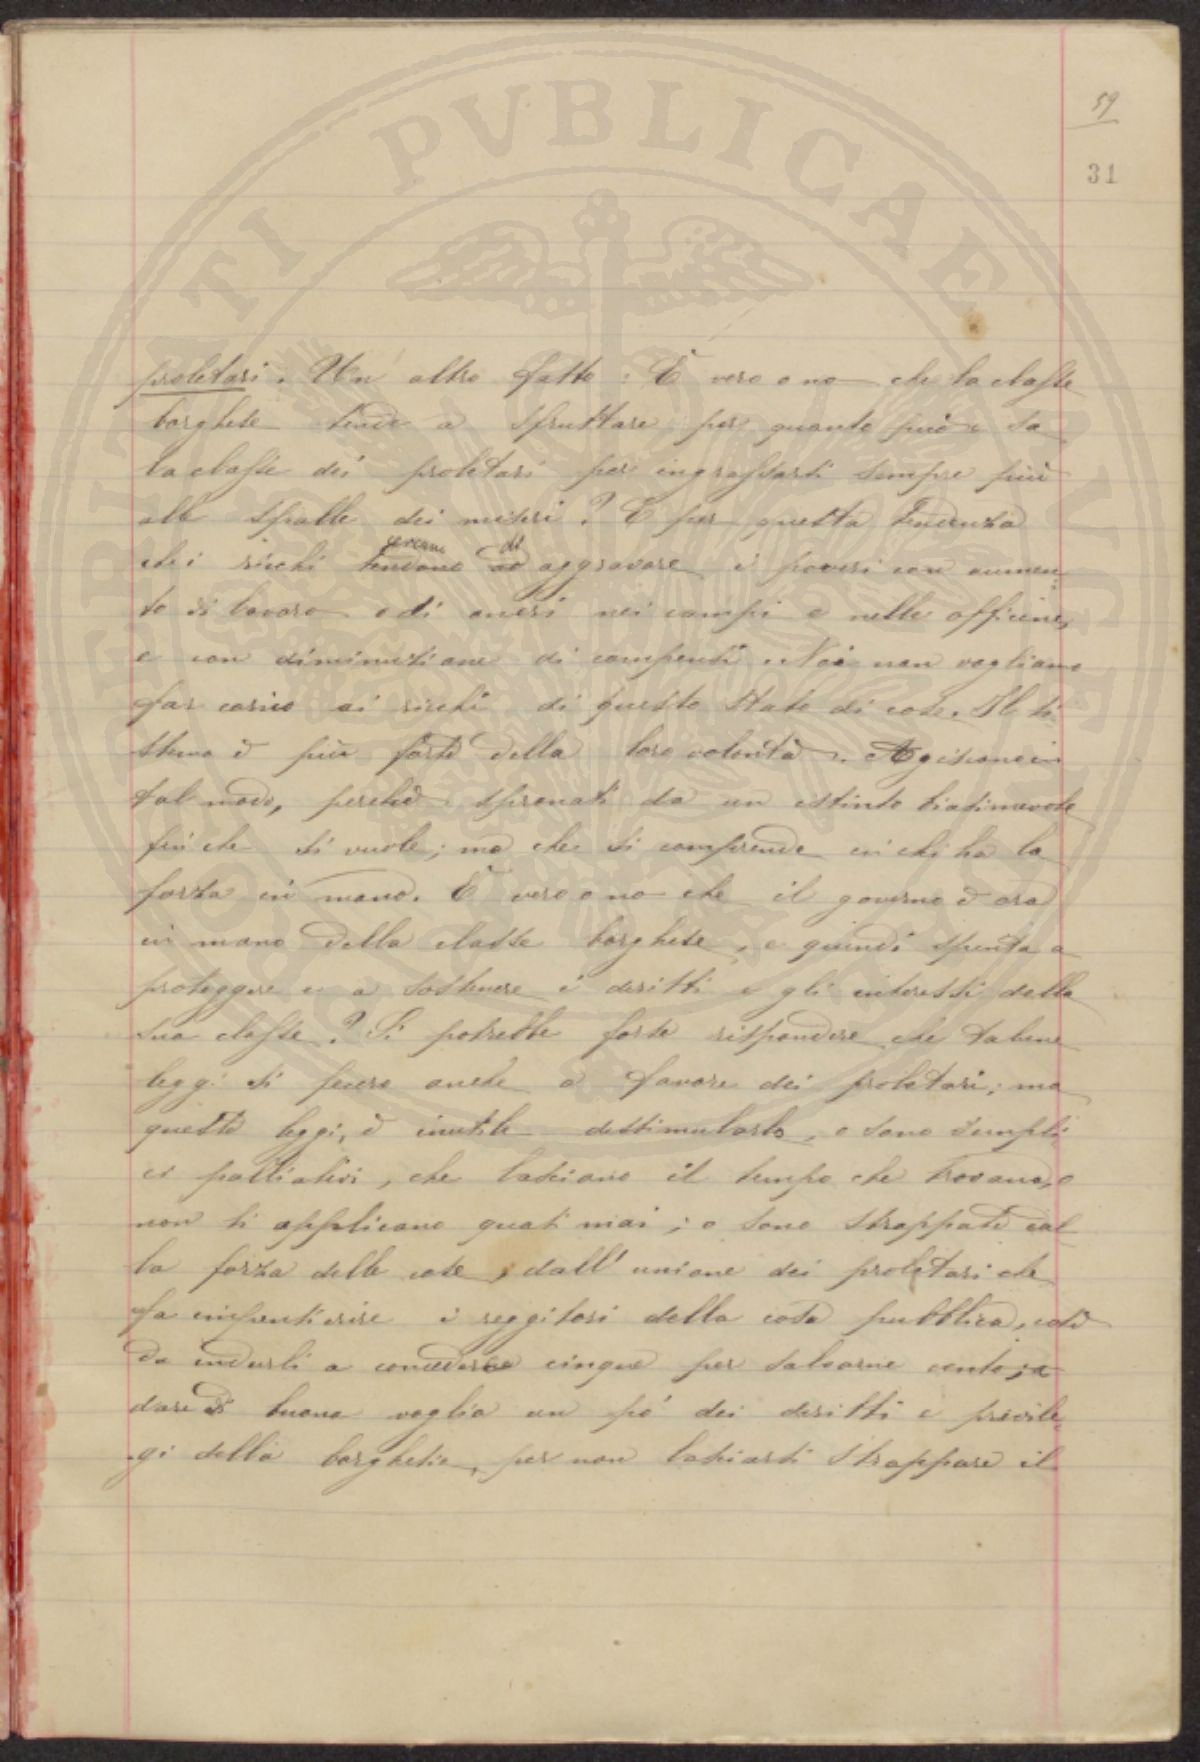 59
31
proletari. Un altro fatto: È vero o no che la classe
borghese tende a sfruttare per quanto può e sa
la classe dei proletari per ingrassarsi sempre più
alle spalle dei miseri? E per questa tendenza
che i ricchi tendono ad aggravare i poveri con aumen-
cercano di
to di lavoro e di oneri nei campi e nelle officine,
e con diminuzione di compensi. Noi non vogliamo
far carico ai ricchi di questo stato di cose. Il si
stema è più forte della loro volontà. Agiscono in
tal modo, perchè spronati da un istinto biasimevole
fin che si vuole; ma che si comprende in chi ha la
forza in mano. È vero o no che il governo è ora
in mano della classe borghese, e quindi a
proteggere e a sostenere i diritti e gli interessi della
sua classe? Si potrebbe forse rispondere che talune
leggi si fecero anche a favore dei proletari; ma
queste leggi, è inutile dissimularlo, o sono sempli
ci palliativi, che lasciano il tempo che trovano, e
non si applicano quasi mai; o sono strappate dal
la forza delle cose, dall'unione dei proletari che
fa impensierire i reggitori della cosa pubblica, così
da indurli a concedere cinque per salvarne cento; a
dare di buona voglia un pò dei diritti e privile-
gi della borghesia, per non lasciarsi strappare il
PERITATI PVBLICAE